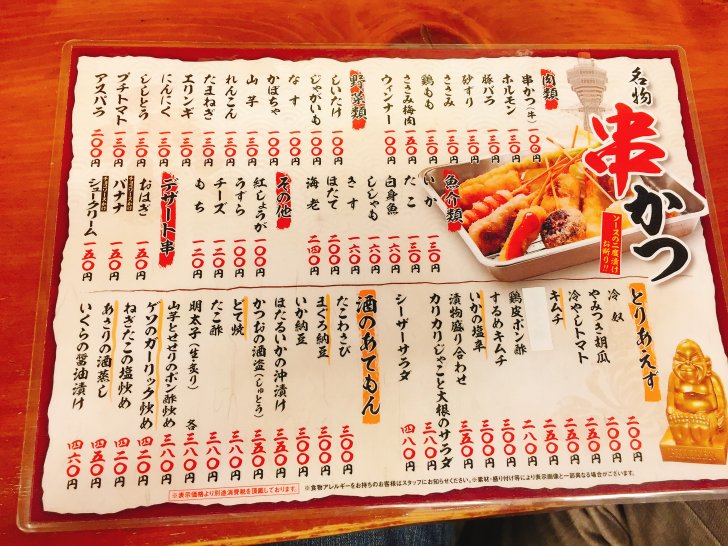 名物
串かつ
ソースの二度漬けお断り!!
肉類
串かつ(牛) 一〇〇円
ホルモン 一三〇円
豚バラ 一三〇円
砂ずり 一三〇円
ささみ 一三〇円
鶏もも 一三〇円
ささみ梅肉 一五〇円
ウィンナー 一〇〇円
野菜類
しいたけ 一〇〇円
じゃがいも 一〇〇円
なす 一〇〇円
かぼちゃ 一〇〇円
山芋 一三〇円
れんこん 一三〇円
たまねぎ 一三〇円
エリンギ 一三〇円
にんにく 一三〇円
ししとう 一三〇円
プチトマト 一三〇円
アスパラ 二〇〇円
魚介類
いか 一三〇円
たこ 一三〇円
白身魚 一六〇円
ししゃも 一六〇円
きす 一六〇円
ほたて 二〇〇円
海老 二四〇円
その他
紅しょうが 一〇〇円
うずら 一〇〇円
チーズ 一二〇円
もち 一二〇円
デザート串
おはぎ 一五〇円
バナナ 一五〇円
シュークリーム 一五〇円
とりあえず
冷奴 二〇〇円
やみつき胡瓜 二〇〇円
冷やしトマト 二五〇円
キムチ 二五〇円
鶏皮ポン酢 二八〇円
するめキムチ 三〇〇円
いかの塩辛 三〇〇円
漬物盛り合わせ 三五〇円
カリカリじゃこと大根のサラダ 三八〇円
シーザーサラダ 四八〇円
酒のあてもん
たこわさび 三〇〇円
まぐろ納豆 三〇〇円
いか納豆 三〇〇円
ほたるいかの沖漬け 三五〇円
かつおの酒盗(しゅとう) 三五〇円
どて焼 三八〇円
たこ酢 三八〇円
明太子(生・炙り) 各三八〇円
山芋とせせりのポン酢炒め 三八〇円
ゲソのガーリック炒め 四二〇円
ねぎだこの塩炒め 四二〇円
あさりの酒蒸し 四五〇円
いくらの醤油漬け 四六〇円
※表示価格より別途消費税を頂戴しております。
※食物アレルギーをお持ちのお客様はスタッフにお知らせください。※素材・盛り付け等により表示画像と一部異なる場合がございます。